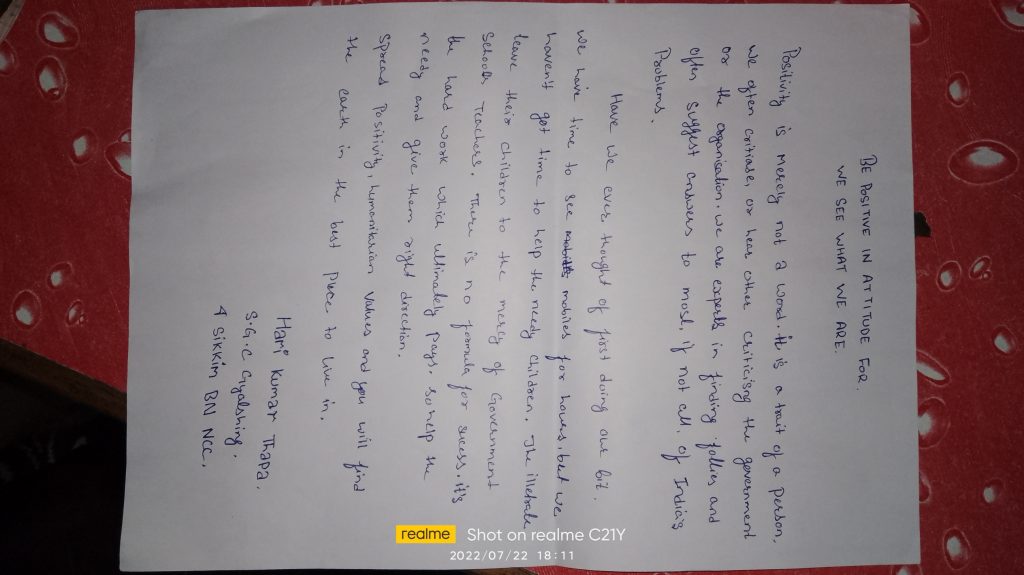 BE POSITIVE IN ATTITUDE FOR
WE SEE WHAT WE ARE.
Positivity is merely not a word. It is a trait of a person.
We often critiase, or hear other criticisng the government
or the organisation. we are experts in finding follies and
often suggest answers to most, if not all, of India's
Problems.
Have we ever thought of first doing our bit.
we have time to see mobiles for hours, but we
haven't got time to help the needy children. The illetrate
leave their children to the mercy of Government
Schools Teachers. There is no formula for sucess. it's
the hard work which ultimately pays. so help the
needy and give them right direction.
Spread Positivity, humanitarian values and you will find
the earth in the best place to live in.
Hari Kumar Thapa.
S.G.C Gyalshing.
4 SIKKIM BN NCC.
realme Shot on realme C21Y
2022/07/22 18:11